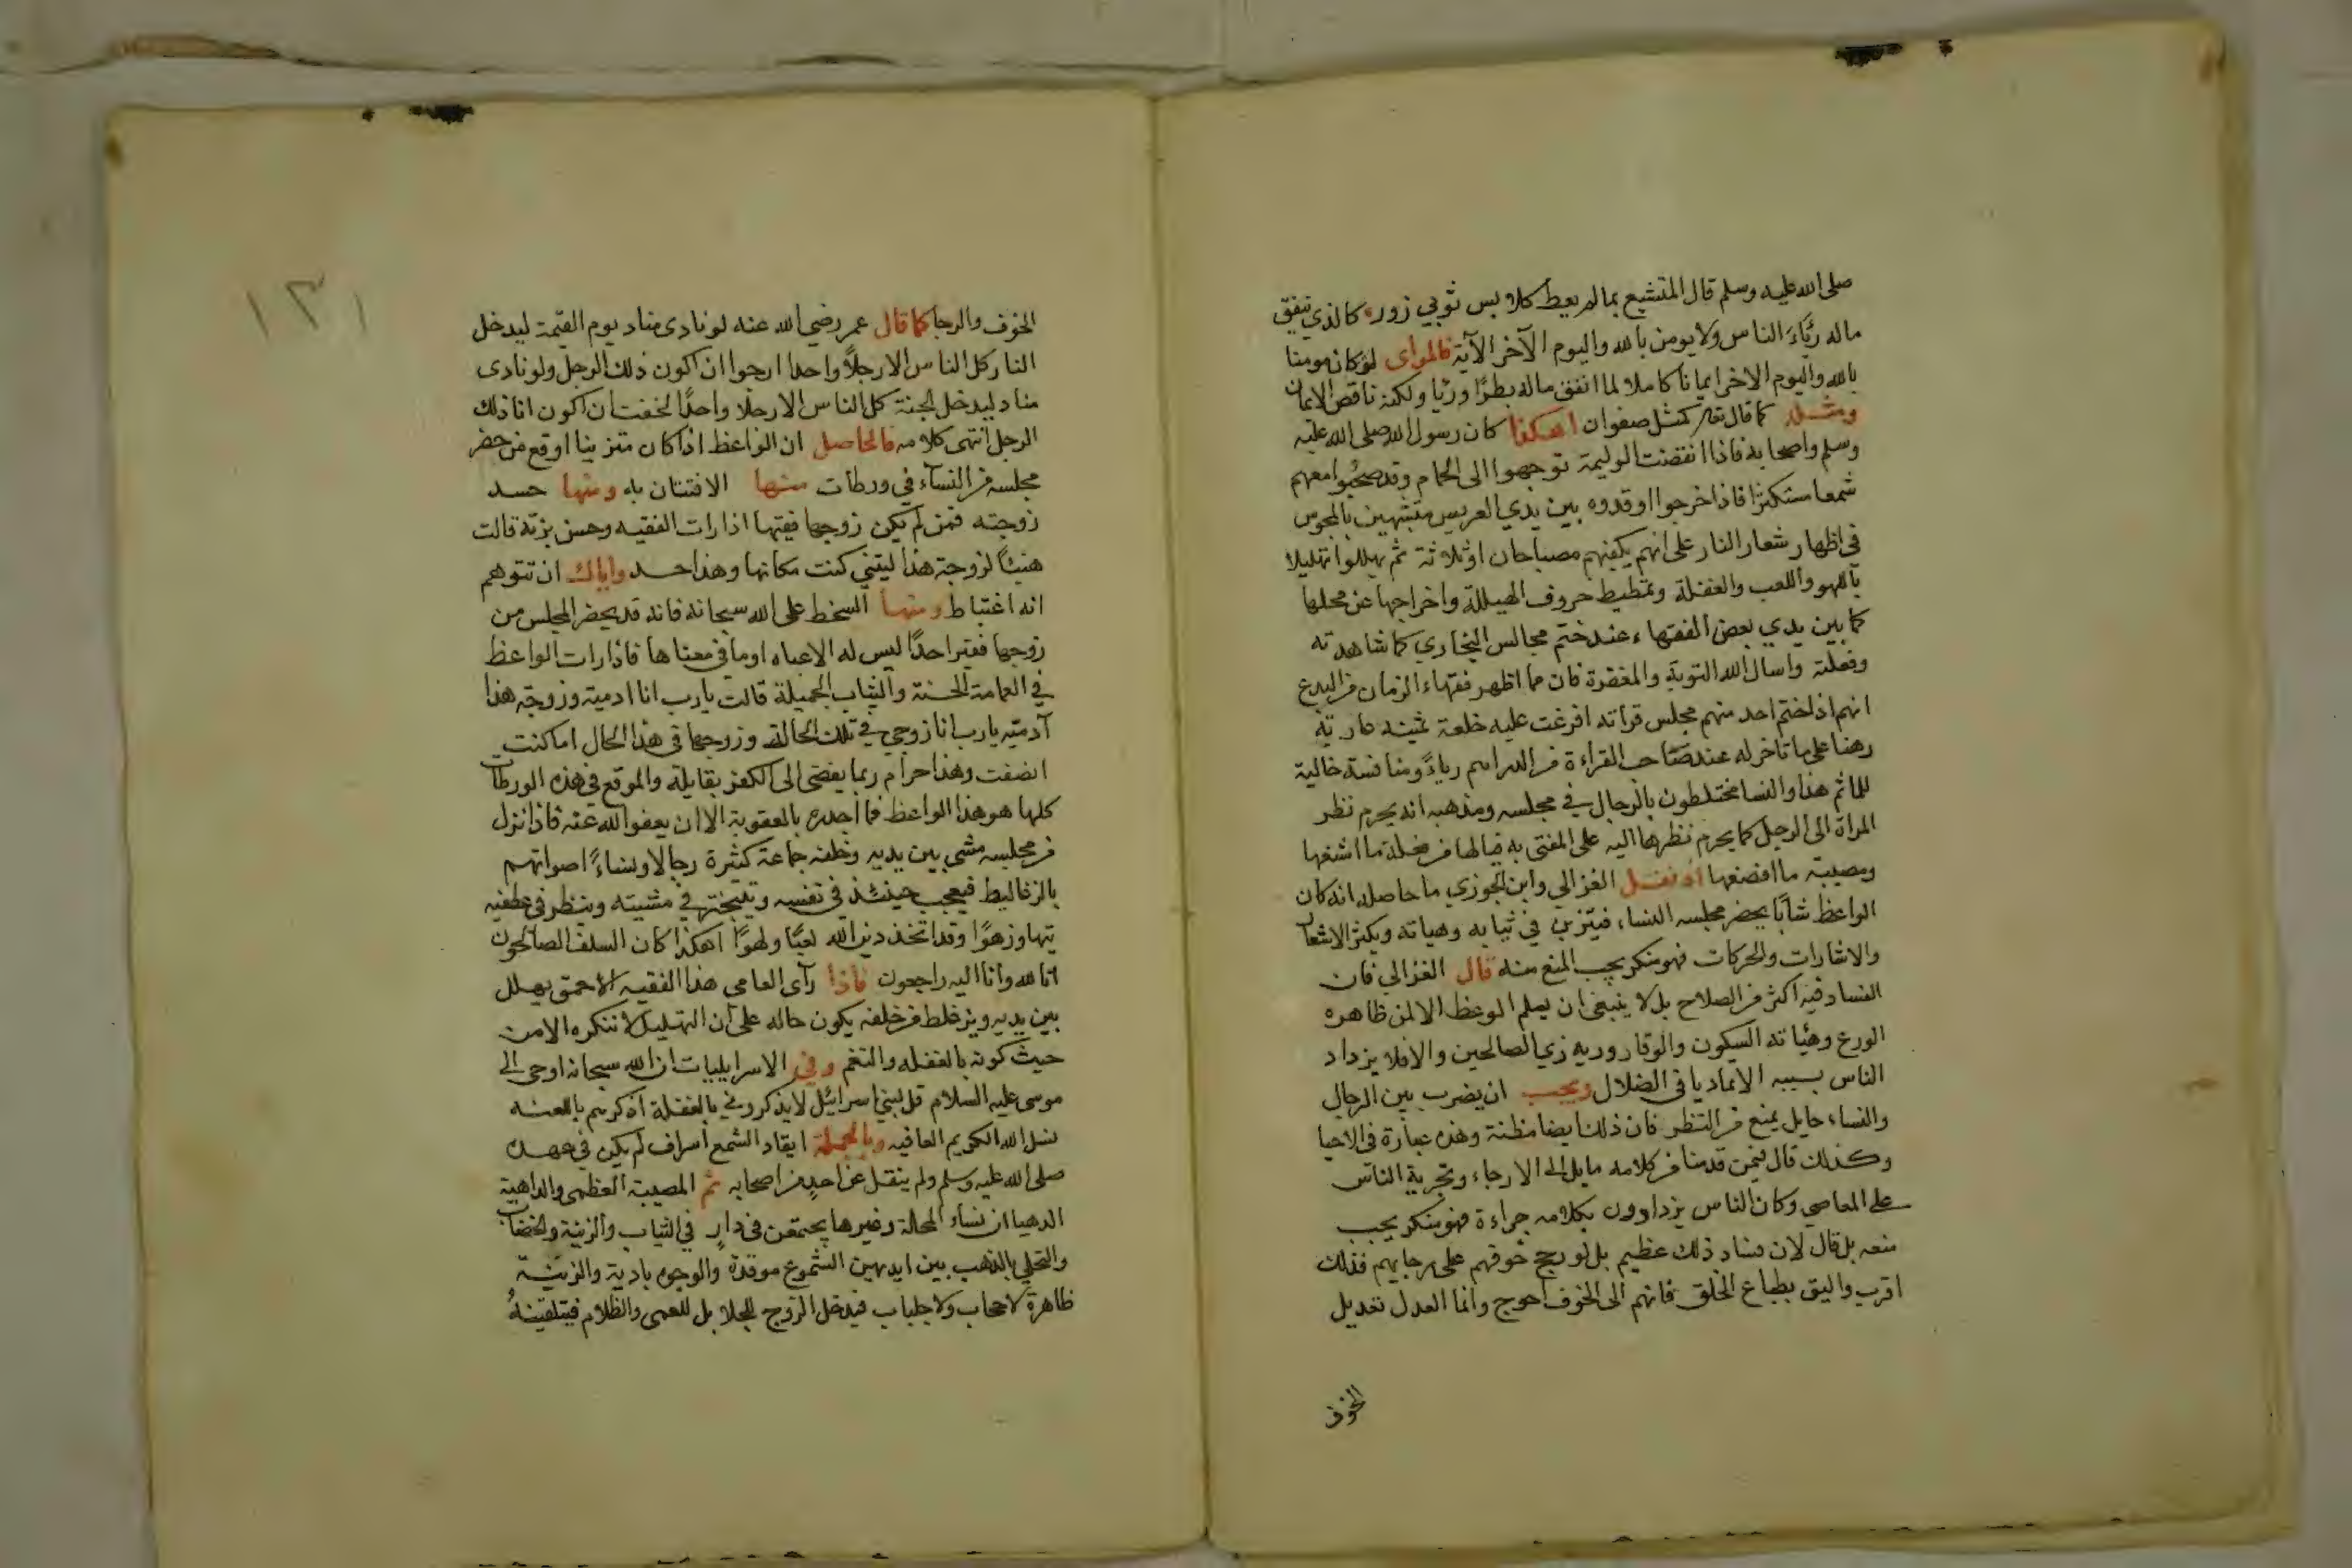 صلى الله عليه وسلم قال المتشبع بما لم يعط كلابس ثوبي زور كالذي ينفق
ماله رئاء الناس ولا يومن بالله واليوم الآخر الآية فالمرأى لو كان مومنا
بالله واليوم الاخر ايمانا كاملا لما انفق ماله بطرًا وريا ولكنه ناقص الايمان
ومثله كما قال تعالى كمثل صفوان اهكذا كان رسول الله صلى الله عليه
وسلم واصحابه فاذا انقضت الوليمة توجهوا الى الحمام وقد صحبوا معهم
شمعا مستكثرا فاذا خرجوا اوقدوه بين يدي العريس متشبهين بالمجوس
في اظهار شعار النار على انهم يكفيهم مصباحان او ثلاثة ثم يهللوا تهليلا
باللهو واللعب والغفلة وتمطيط حروف الهيللة واخراجها عن محلها
كما بين يدي بعض الفقهاء عند ختم مجالس البخاري كما شاهدته
وفعلته واسال الله التوبة والمغفرة فان مما اظهر فقهاء الزمان من البدع
انهم اذا ختم احد منهم مجلس قراته افرغت عليه خلعة ثمينه عارية
رهنا على ما تاخر له عند صاحب القراءة من الدراهم رياءً ومنافسة خالية
للماثم هذا والنسا مختلطون بالرجال في مجلسه ومذهبه انه يحرم نظر
المراة الى الرجل كما يحرم نظرها اليه على المفتى به فيا لها من خجلة ما اشنعها
ومصيبة ما افضعها اذ نقل الغزالي وابن الجوزي ما حاصله انه كان
الواعظ شابًا يحضر مجلسه النساء فيتزين في ثيابه وهياته ويكثر الاشعار
والاشارات والحركات فهو منكر يجب المنع منه قال الغزالي فان
الفساد فيه اكثر من الصلاح بل لا ينبغي ان يسلم الوعظ الا لمن ظاهره
الورع وهيئاته السكون والوقار وزيه زي الصالحين والا فلا يزداد
الناس بسببه الا تماديا في الضلال ويجب ان يضرب بين الرجال
والنساء حايل يمنع من النظر فان ذلك ايضا مظنة وهذه عبارة في الاحيا
وكذلك قال فيمن قدمنا من كلامه مايل الى الارجاء وتجرية الناس
على المعاصي وكان الناس يزدادون بكلامه جراءة فهو منكر يجب
منعه بل قال لان فساد ذلك عظيم بل لو رجح خوفهم على رجايهم فذلك
اقرب واليق بطباع الخلق فانهم الى الخوف احوج وانما العدل تعديل
الخوف
١٣١
الخوف والرجا كما قال عمر رضي الله عنه لو نادى مناد يوم القيمة ليدخل
النار كل الناس الا رجلاً واحدا ارجوا ان اكون ذلك الرجل ولو نادى
مناد ليدخل الجنة كل الناس الا رجلا واحدًا لخفت ان اكون انا ذلك
الرجل انتهى كلامه فالحاصل ان الواعظ اذا كان متزينا اوقع من حضر
مجلسه من النساء في ورطات منها الافتتان به ومنها حسد
زوجته فمن لم يكن زوجها فقيها اذا رات الفقيه وحسن بزته قالت
هنيئًا لزوجة هذا ليتني كنت مكانها وهذا حسد واياك ان تتوهم
انه اغتباط ومنها السخط على الله سبحانه فانه قد يحضر المجلس من
زوجها فقير احدًا ليس له الا عباه او ما في معناها فاذا رات الواعظ
في العمامة الحسنة والثياب الجميلة قالت يا رب انا ادمية وزوجة هذا
آدميه يا رب انا زوجي في تلك الحالة وزوجها في هذا الحال اما كنت
انصفت وهذا حرام ربما يفضى الى الكفر بقايلة والموقع في هذه الورطات
كلها هو هذا الواعظ فما اجدره بالعقوبة الا ان يعفوا الله عنه فاذا نزل
من مجلسه مشى بين يديه وخلفه جماعة كثيرة رجالا ونساءً اصواتهم
بالزغاليط فيعجب حينئذ في نفسه ويتبختر في مشيته وينظر في عطفيه
تيها وزهوًا وقد اتخذ دين الله لعبًا ولهوًا اهكذا كان السلف الصالحون
انا لله وانا اليه راجعون فاذا رآى العامي هذا الفقيه الاحمق يهلل
بين يديه ويزغلط من خلفه يكون حاله على ان التهليل لا ننكره الا من
حيث كونه بالغفله والنغم وفي الاسرايليات ان الله سبحانه اوحى الى
موسى عليه السلام قل لبني اسرائيل لا يذكروني بالغفلة اذكرهم باللعنه
نسل الله الكريم العافيه وبالجملة ايقاد الشمع اسراف لم يكن في عهده
صلى الله عليه وسلم ولم ينقل عن احد من اصحابه ثم المصيبة العظمى والداهية
الدهيا ان نساء المحلة وغيرها يجتمعن في دارٍ في الثياب والزينة والخضاب
والتحلي بالذهب بين ايديهن الشموع موقدة والوجوه بادية والزينة
ظاهرة لا حجاب ولا جلباب فيدخل الزوج للجلا بل للعمى والظلام فيتلقينهُ